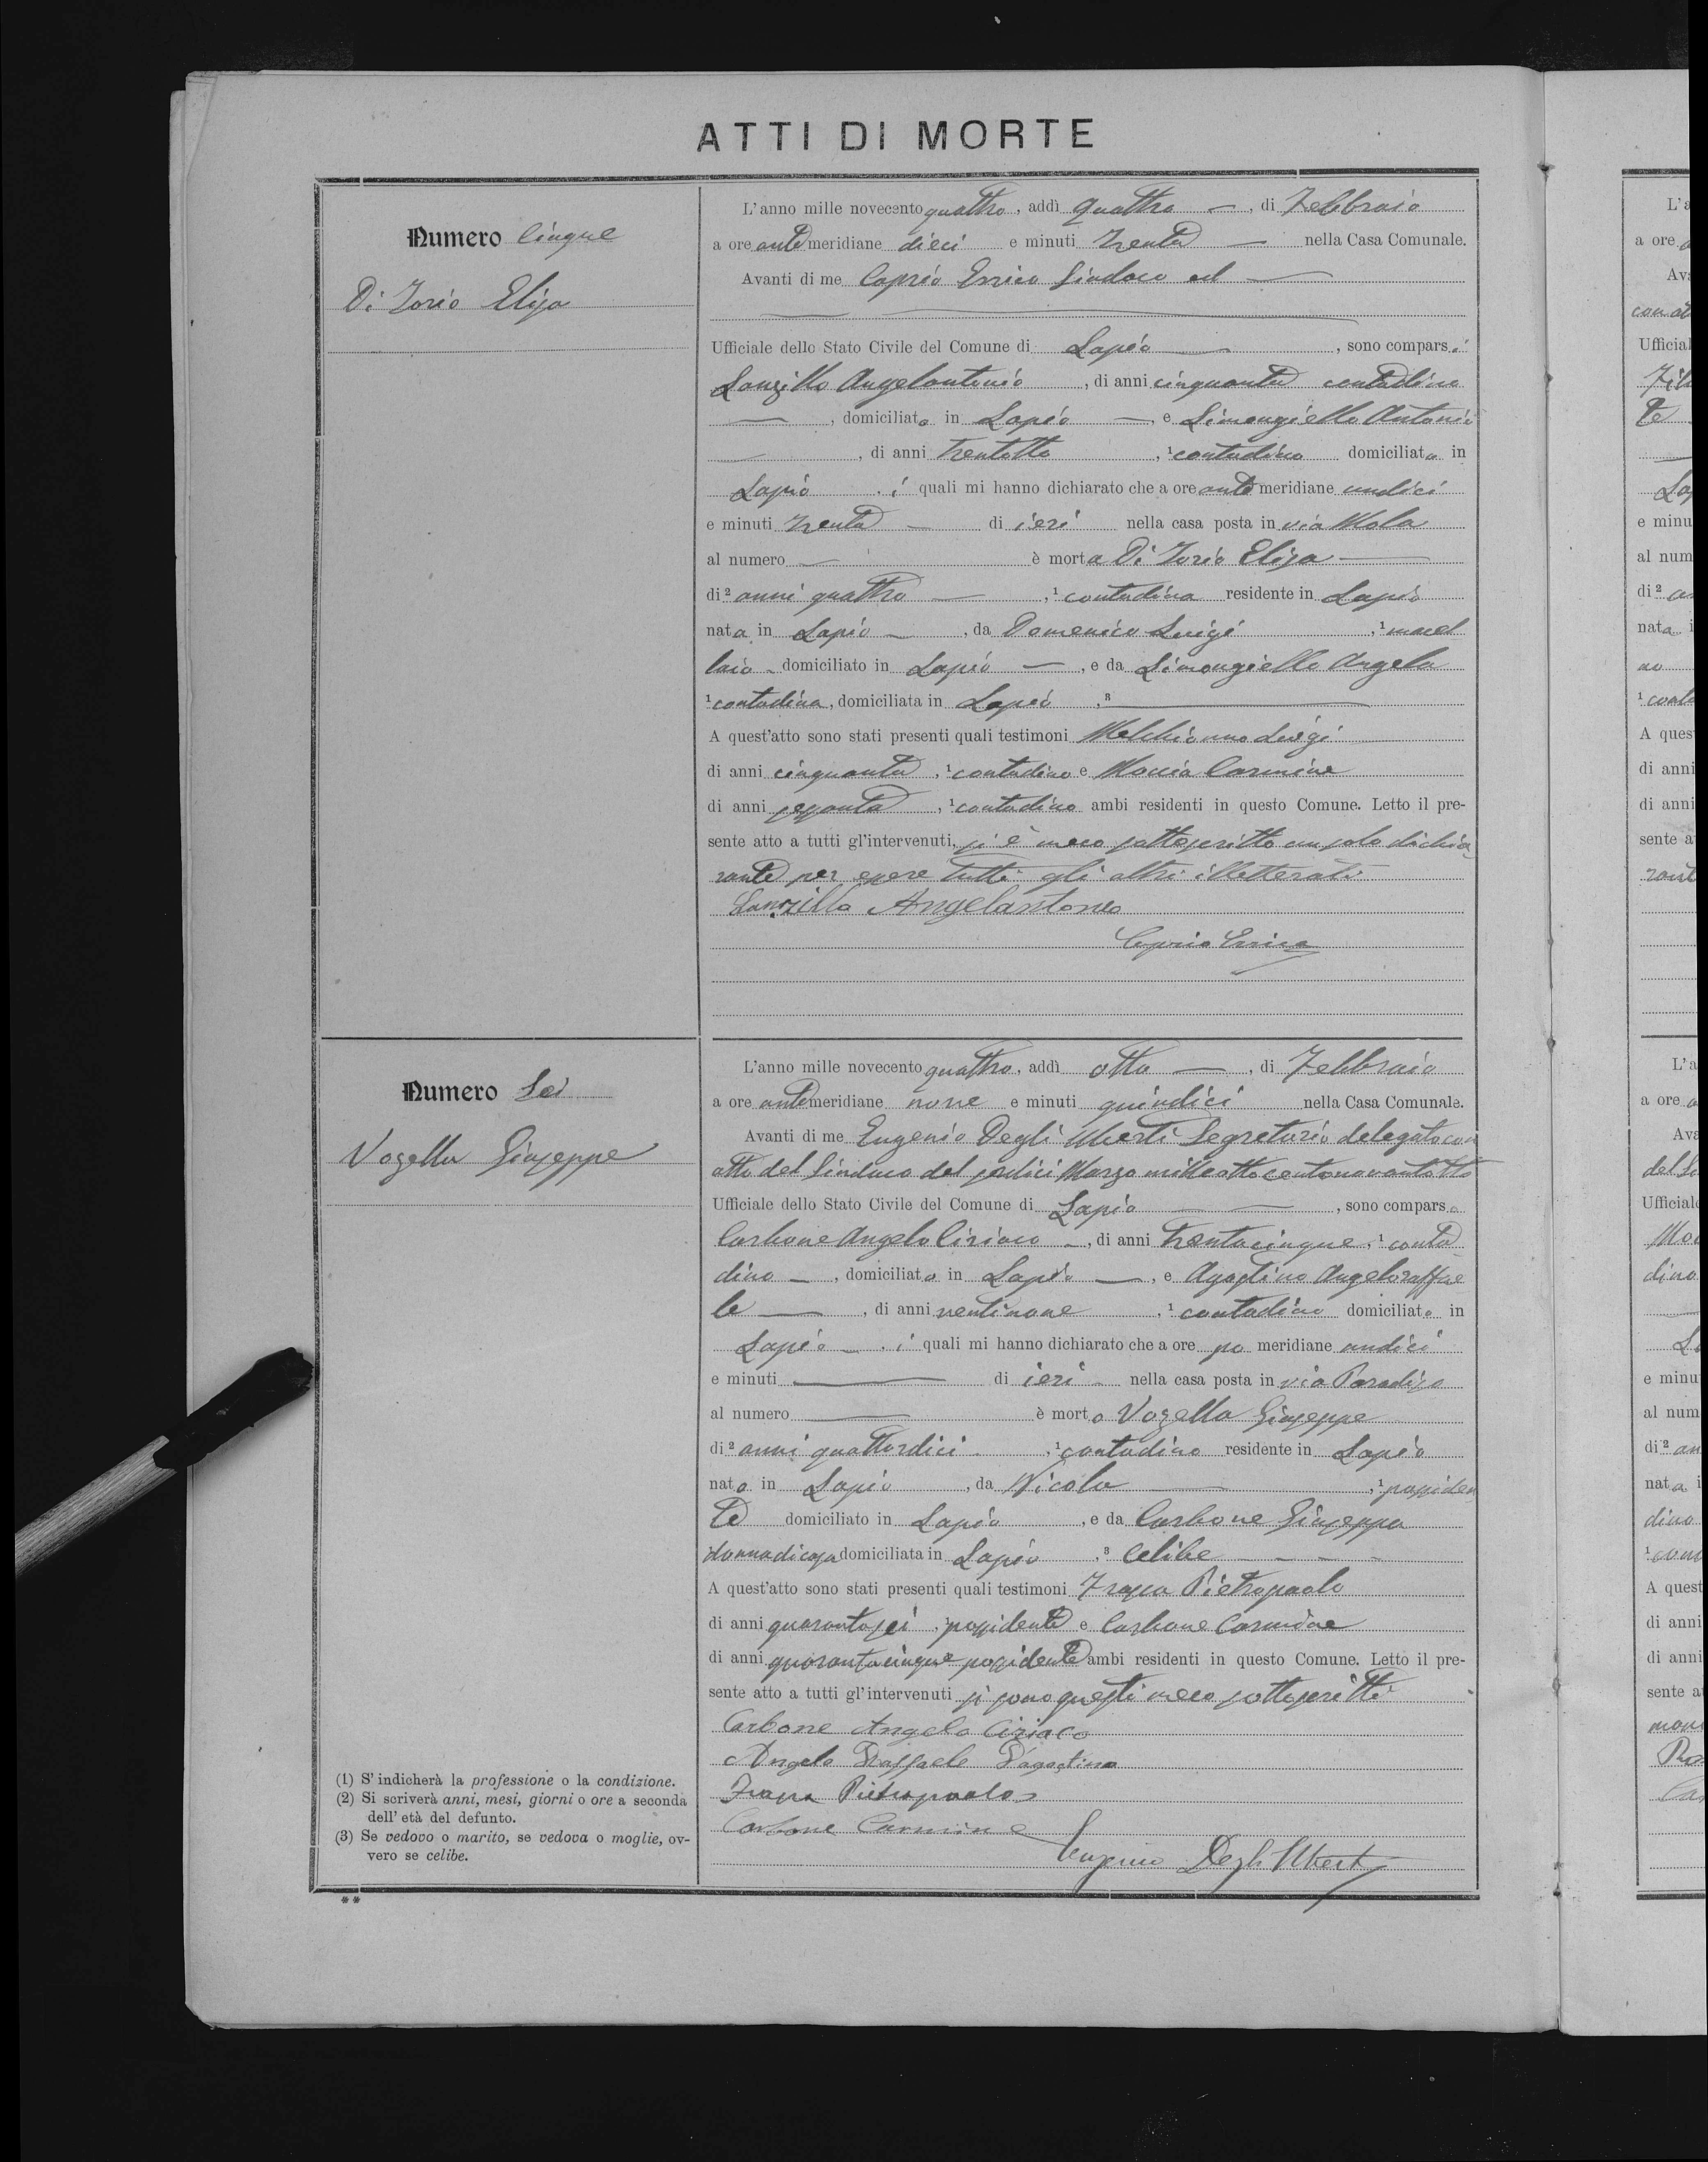 ATTI DI MORTE
Numero Cinque
Di Iorio Elisa
L'anno mille novecento quattro, addì quattro —, di Febbraio
a ore antemeridiane dieci e minuti trenta — nella Casa Comunale.
Avanti di me Caprio Enrico Sindaco ed —
Ufficiale dello Stato Civile del Comune di Lapio —, sono comparsi
Lanzillo Angelantonio, di anni cinquanta contadino
—, domiciliato in Lapio —, e Limongiello Antonio
—, di anni trentotto, ¹ contadino domiciliato in
Lapio. i quali mi hanno dichiarato che a ore ante meridiane undici
e minuti trenta — di ieri nella casa posta in via Mola
al numero — è morta Di Iorio Elisa —
di ² anni quattro —, ¹ contadina residente in Lapio
nata in Lapio —, da Domenico Luigi, ¹ macel
laio - domiciliato in Lapio —, e da Limongiello Angela
¹ contadina, domiciliata in Lapio, ³ —
A quest'atto sono stati presenti quali testimoni Melchionno Luigi
di anni cinquanta, ¹ contadino e Moccia Carmine
di anni sessanta, ¹ contadino ambi residenti in questo Comune. Letto il pre-
sente atto a tutti gl'intervenuti, si è meco sottoscritto un solo dichia
rante per essere tutti gli altri illetterati
Lanzillo Angelantonio
Caprio Enrico
Numero Sei
Vozella Giuseppe
L'anno mille novecento quattro, addì otto —, di Febbraio
a ore antemeridiane nove e minuti quindici nella Casa Comunale.
Avanti di me Eugenio Degli Uberti Segretario delegato con
atto del Sindaco del sedici Marzo milleottocentonovantotto
Ufficiale dello Stato Civile del Comune di Lapio —, sono comparso
Carbone Angelo Ciriaco —, di anni trentacinque, ¹ conta
dino —, domiciliato in Lapio —, e Agostino Angeloraffae
le —, di anni ventinove, ¹ contadino domiciliato in
Lapio —. i quali mi hanno dichiarato che a ore po meridiane undici
e minuti — di ieri — nella casa posta in via Paradiso
al numero — è morto Vozella Giuseppe
di ² anni quattordici, ¹ contadino residente in Lapio
nato in Lapio, da Nicola —, ¹ possiden
te domiciliato in Lapio, e da Carbone Giuseppa
donnadicasa domiciliata in Lapio, ³ Celibe - - - -
A quest'atto sono stati presenti quali testimoni Frasca Pietropaolo
di anni quarantasei, ¹ possidente e Carbone Carmine
di anni quarantacinque possidente ambi residenti in questo Comune. Letto il pre-
sente atto a tutti gl'intervenuti si sono questi meco sottoscritti
Carbone Angelo Ciriaco
Angelo Raffaele D'agostino
Pietropaolo
Carbone Carmine
Eugenio Degli Uberti
(1) S'indicherà la professione o la condizione.
(2) Si scriverà anni, mesi, giorni o ore a seconda
dell'età del defunto.
(3) Se vedovo o marito, se vedova o moglie, ov-
vero se celibe.
**